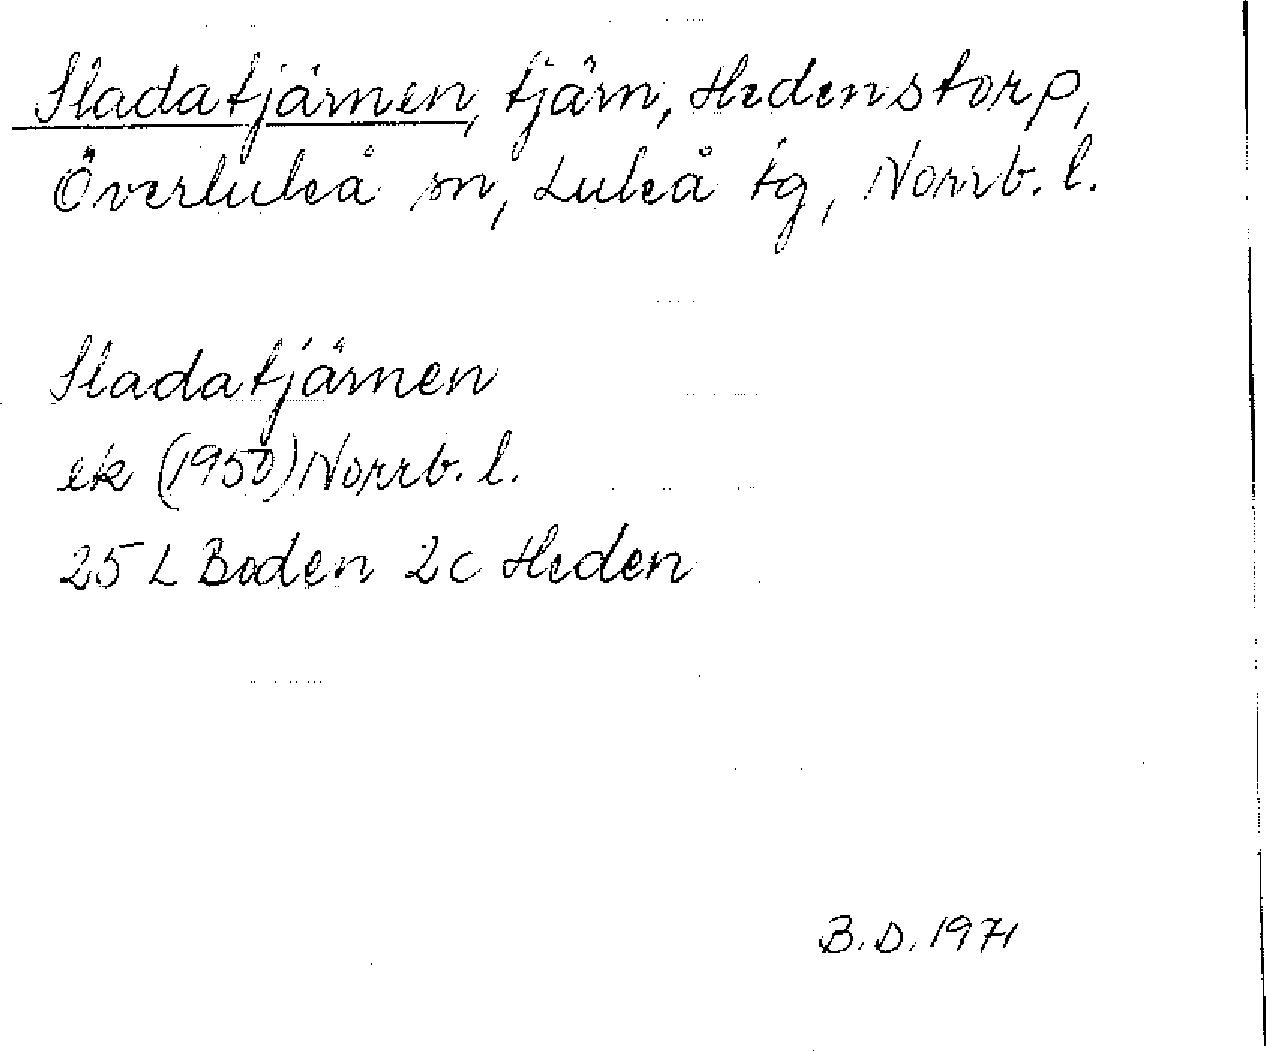 Sladatjärnen, tjärn, Hedenstorp,
Överluleå sn, Luleå tg, Norrb. l.
Sladatjärnen
ek (1950) Norrb. l.
25 L Boden 2c Heden
B.D. 1971